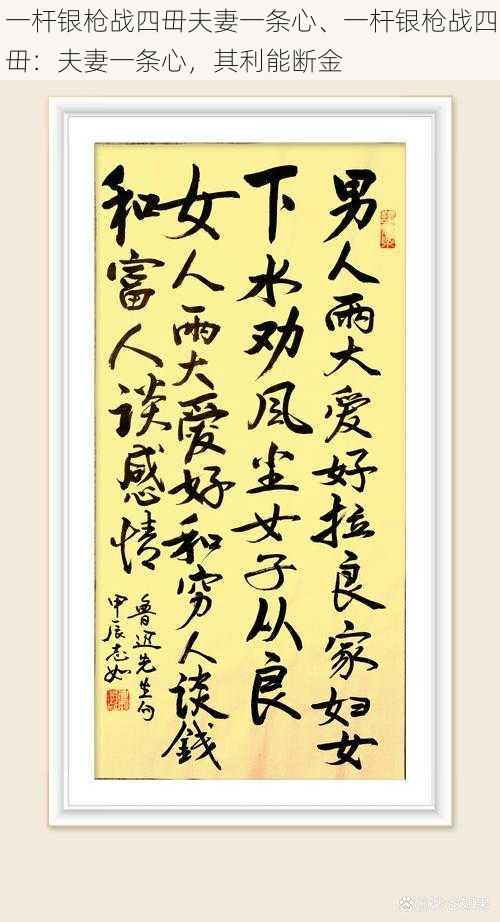 一杆银枪战四毌夫妻一条心、一杆银枪战四
毌：夫妻一条心，其利能断金
男人兩大爱好拉良家妇女
下水劝风尘女子从良
女人兩大爱好和穷人谈錢
和富人谈感情
鲁迅先生句
甲辰志如